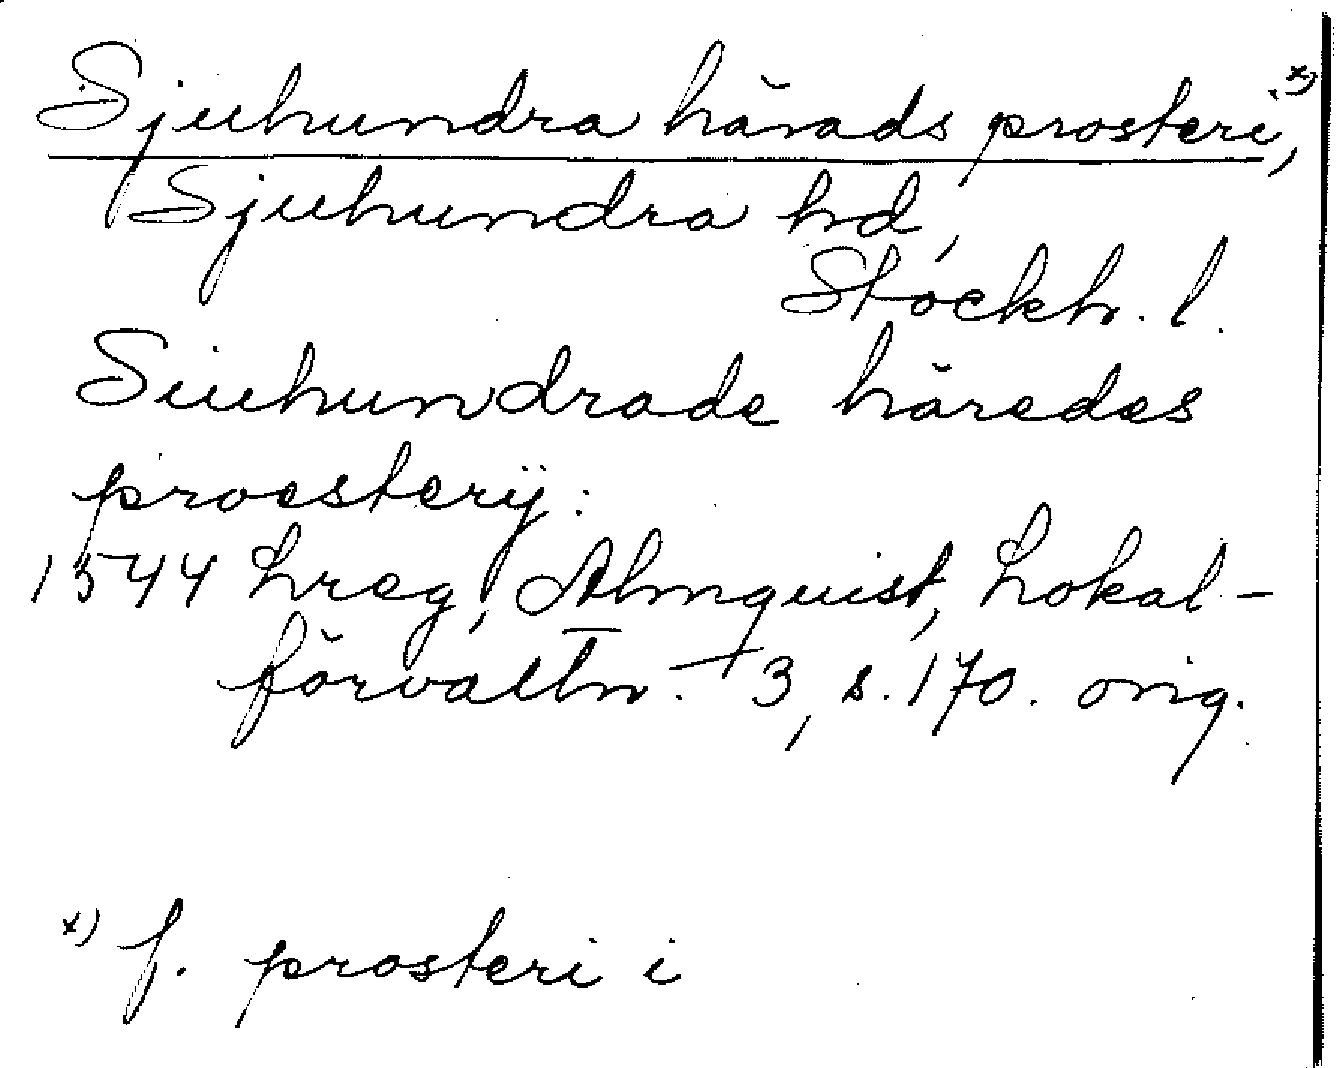 Sjuhundra härads prosteri,x)
Sjuhundra hd,
Stockh. l.
Siuhundrade häredes
proesterÿ:
1544 Lreg, Almquist, Lokal-
förvaltn. I 3, s. 170. orig.
x) f. prosteri i